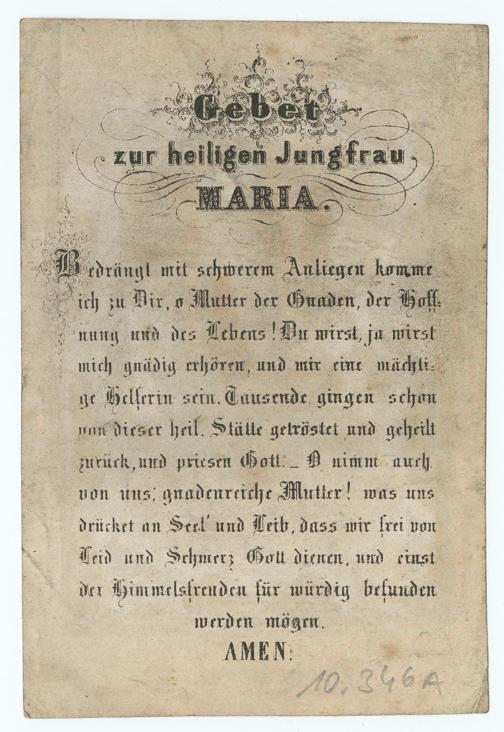 Gebet
zur heiligen Jungfrau
MARIA.
Bedrängt mit schwerem Anliegen komme
ich zu Dir, o Mutter der Gnaden, der Hoff-
nung und des Lebens! Du wirst, ja wirst
mich gnädig erhören, und mir eine mächti-
ge Helferin sein. Tausende gingen schon
von dieser heil. Stätte getröstet und geheilt
zurück, und priesen Gott. _ O nimm auch
von uns, gnadenreiche Mutter! was uns
drücket an Seel' und Leib, dass wir frei von
Leid und Schmerz Gott dienen, und einst
der Himmelsfreuden für würdig befunden
werden mögen.
AMEN:
10.346A